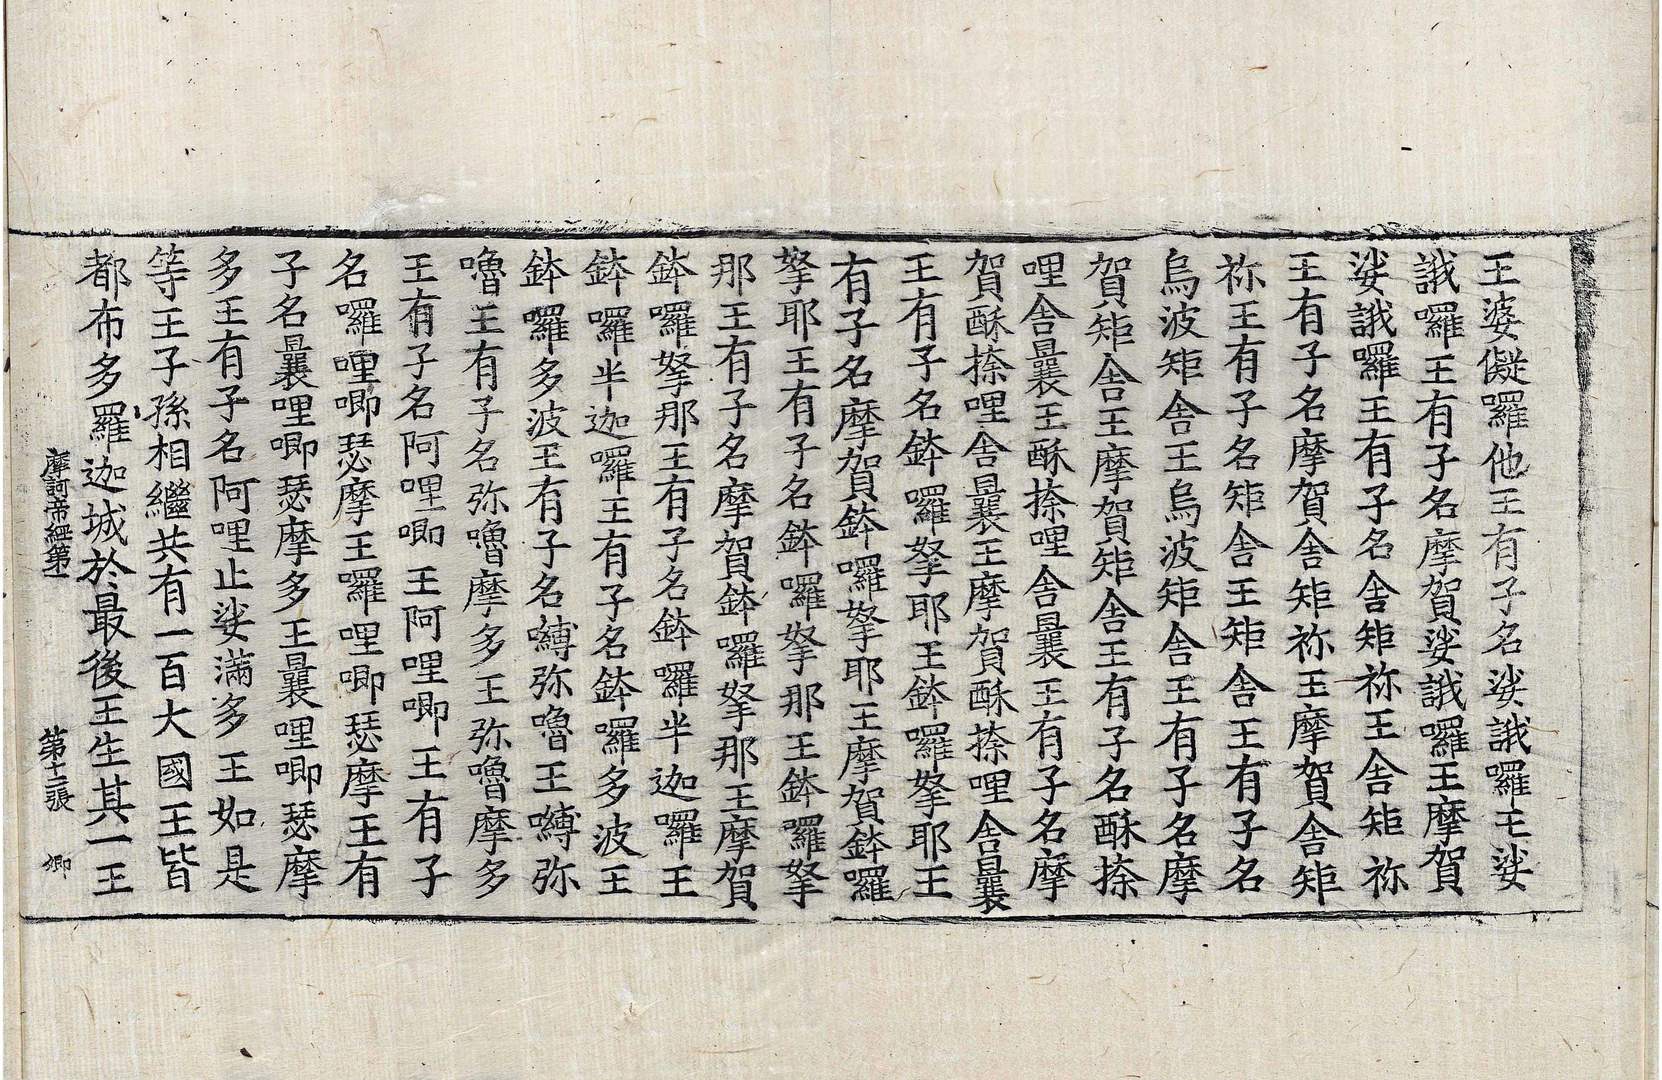 王婆儗囉他王有子名娑誐囉王娑
誐囉王有子名摩賀娑誐囉王摩賀
娑誐囉王有子名舎矩祢王舎矩祢
王有子名摩賀舎矩祢王摩賀舎矩
祢王有子名矩舎王矩舎王有子名
烏波矩舎王烏波矩舎王有子名摩
賀矩舎王摩賀矩舎王有子名酥捺
哩舎曩王酥捺哩舎曩王有子名摩
賀酥捺哩舎曩王摩賀酥捺哩舎曩
王有子名鉢囉拏耶王鉢囉拏耶王
有子名摩賀鉢囉拏耶王摩賀鉢囉
拏耶王有子名鉢囉拏那王鉢囉拏
那王有子名摩賀鉢囉拏那王摩賀
鉢囉拏那王有子名鉢囉半迦囉王
鉢囉半迦囉王有子名鉢囉多波王
鉢囉多波王有子名嚩弥嚕王嚩弥
嚕王有子名弥嚕摩多王弥嚕摩多
王有子名阿哩唧王阿哩唧王有子
名囉哩唧瑟摩王囉哩唧瑟摩王有
子名曩哩唧瑟摩多王曩哩唧瑟摩
多王有子名阿哩止娑滿多王如是
等王子孫相繼共有一百大國王皆
都布多羅迦城於最後王生其一王
摩訶帝經第一 第十二張 卿